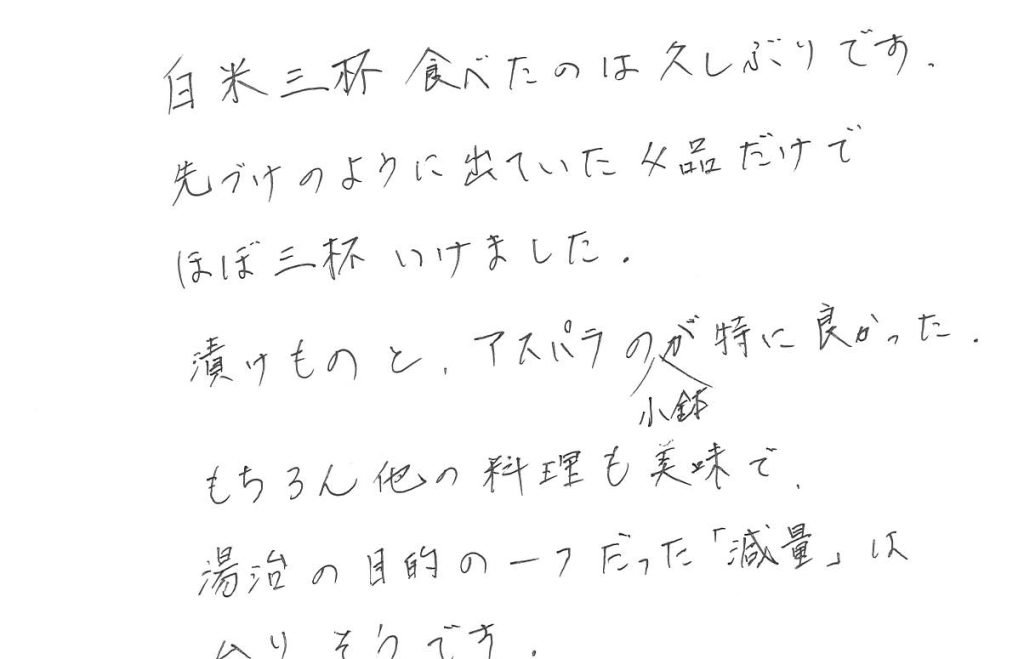 白米三杯 食べたのは久しぶりです.
先づけのように出ていた 4品だけで
ほぼ三杯 いけました.
漬けものと, アスパラの小鉢が特に良かった.
もちろん他の料理も美味で,
湯治の目的の一つだった「減量」は
ムリそうです.